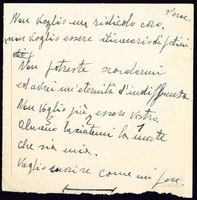 Non voglio un ridicolo coro,
non voglio essere itinerari di
Non potreste scordarmi
ed avrei un'eternità d'indifferenza
Non voglio più essere vostro.
Almeno lasciatemi la morte
che sia mia.
Voglio morire come mi pare